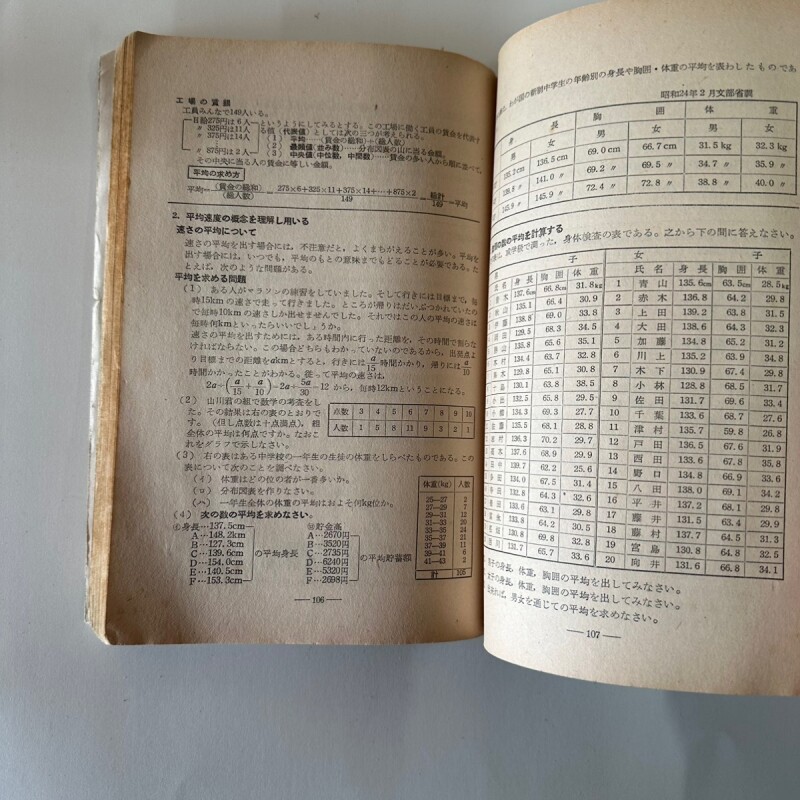 工場の賃銀
工員みんなで149人いる。
日給275円は6人
〃 325円は11人
〃 375円は14人
〃 875円は2人
というようにしてみるとする。この工場に働く工員の賃金を代表する値(代表値)としては次の三つが考えられる。
(1) 平均……(賃金の総和)÷(総人数)
(2) 最頻値(並み数)……分布図表の山に当る金額。
(3) 中央値(中位数,中間数)……賃金の多い人から順に並べて,その中央に当る人の賃金に等しい金額。
平均の求め方
平均=(賃金の総和)/(総人数)=275×6+325×11+375×14+…+875×2/149=総計/149=平均
2. 平均速度の概念を理解し用いる
速さの平均について
速さの平均を出す場合には,不注意だと,よくまちがえることが多い。平均を
出す場合には,いつでも,平均のもとの意味までもどることが必要である。た
とえば,次のような問題がある。
平均を求める問題
(1) ある人がマラソンの練習をしていました。そして行きには目標まで,毎
時15kmの速さで走って行きました。ところが帰りはだいぶつかれていたの
で毎時10kmの速さしか出せませんでした。それではこの人の平均の速さは
毎時何kmといったらいいでしょうか。
速さの平均を出すためには,ある時間内に行った距離を,その時間で割らな
ければならない。この場合どちらもわかっていないのであるから,出発点よ
り目標までの距離をakmとすると,行きにはa/15時間かかり,帰りにはa/10
時間かかったことがわかる。従って平均の速さは,
2a÷(a/15+a/10)=2a÷5a/30=12 から,毎時12kmということになる。
(2) 山川君の組で数学の考査をし
た。その結果は右の表のとおりで
す。(但し点数は十点満点),組
全体の平均は何点ですか。なおこ
れをグラフで示しなさい。
点数 3 4 5 6 7 8 9 10
人数 1 5 8 11 9 3 2 1
(3) 右の表はある中学校の一年生の生徒の体重をしらべたものである。この
表について次のことを調べなさい。
(イ) 体重はどの位の者が一番多いか。
(ロ) 分布図表を作りなさい。
(ハ) 一年生全体の体重の平均はおよそ何kg位か。
体重(kg) 人数
25—27 2
27—29 7
29—31 12
31—33 20
33—35 24
35—37 21
37—39 11
39—41 6
41—43 2
計 105
(4) 次の数の平均を求めなさい。
㋑身長…137.5cm
A…148.2km
B…127.3cm
C…139.6cm
D…154.0cm
E…140.5cm
F…153.3cm
の平均身長
㋺貯金高
A…2670円
B…3520円
C…2735円
D…6240円
E…5320円
F…2698円
の平均貯蓄額
—106—
わが国の新制中学生の年齢別の身長や胸囲・体重の平均を表わしたものであ
昭和24年2月文部省調
身長 胸囲 体重
男 女 男 女 男 女
135.7cm 136.5cm 69.0cm 66.7cm 31.5kg 32.3kg
139.8〃 141.0〃 69.2〃 69.5〃 34.7〃 35.9〃
145.9〃 145.9〃 72.4〃 72.8〃 38.8〃 40.0〃
の数の平均を計算する
で調った,身体検査の表である。之から下の問に答えなさい。
子 女子
名 身長 胸囲 体重 氏名 身長 胸囲 体重
137.6cm 66.8cm 31.8kg 1 青山 135.6cm 63.5cm 28.5kg
66.4 30.9 2 赤木 136.8 64.2 29.8
138.8 69.0 33.8 3 上田 139.2 63.8 31.5
129.5 68.3 34.5 4 大田 138.6 64.3 32.3
135.8 65.6 35.1 5 加藤 134.8 65.2 31.2
134.4 63.7 32.8 6 川上 135.2 63.9 34.8
63.1 30.8 7 木下 130.9 67.4 29.8
130.1 63.8 38.5 8 小林 128.8 68.5 31.7
132.5 65.8 29.5 9 佐田 131.7 69.6 33.4
134.3 69.3 27.7 10 千葉 133.6 68.7 27.6
135.5 68.1 28.8 11 津村 135.7 59.8 26.8
136.3 70.2 29.7 12 戸田 136.5 67.6 31.9
137.6 68.9 33.9 13 西田 133.6 67.8 35.8
139.7 62.2 25.6 14 野口 134.8 66.9 33.6
67.9 31.4 15 八田 138.0 69.1 34.2
132.8 64.3 32.6 16 平井 137.2 68.1 29.8
133.6 63.1 30.5 17 藤井 131.5 63.4 29.9
64.2 32.8 18 藤村 131.5 67.7 29.9
130.9 63.1 29.8 19 宮島 130.8 64.5 32.5
131.7 65.7 33.6 20 向井 131.6 66.8 34.1
男子の身長,体重,胸囲の平均を出してみなさい。
女子の身長,体重,胸囲の平均を出してみなさい。
男女を通じての平均を求めなさい。
—107—